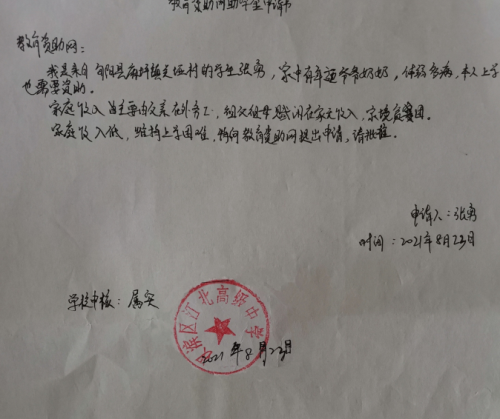 教育资助网助学金申请书
教育资助网：
我是来自旬阳县麻坪镇 村的学生张勇，家中有年迈爷爷奶奶，体弱多病，本人上学
也需要资助。
家庭收入 主要由父亲在外务工，祖父祖母赋闲在家无收入，家境贫困。
家庭收入低，维持上学困难，特向教育资助网提出申请，请批准。
申请人：张勇
时间：2021年8月23日
学校审核：属实
滨区江北高级中学
2021年8月23日